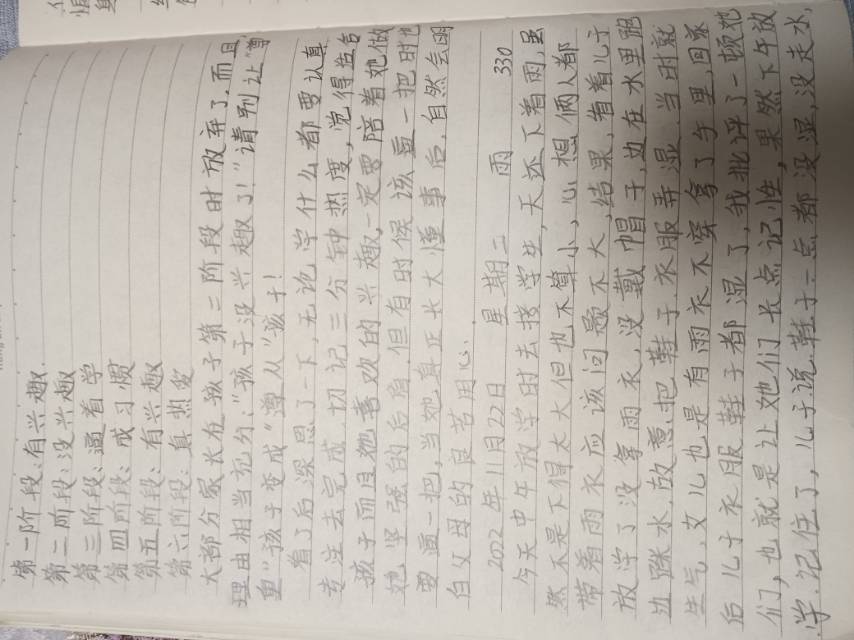 第一阶段:有兴趣.
第二阶段:没兴趣
第三阶段:逼着学
第四阶段:成习惯
第五阶段:有兴趣
第六阶段:真热爱
大部分家长在孩子第二阶段时放弃了.而且
理由相当充分:"孩子没兴趣了!"请别让"尊
重"孩子变成"遵从"孩子!
看了后深思了一下,无论学什么都要认真
专注去完成.切记三分钟热度,觉得苦告
孩子而且她喜欢的兴趣,一定要陪着她做
她坚强的后盾.但有时候该逼一把时也
要逼一把,当她真正长大懂事后,自然会明
白父母的良苦用心.
2022年11月22日 星期二 雨 330
今天中午放学时去接学生,天还下着雨,虽
然不是下得太大但也不算小,心想俩人都
带着雨衣应该问题不大,结果,看着儿子
放学了没拿雨衣,没戴帽子,边在水里跑
边踩水,故意把鞋子.衣服弄湿.当时就
生气,女儿也是有雨衣不穿拿了手里,回家
后儿子衣服鞋子都湿了,我批评了一顿他
们,也就是让她们长点记性,果然下午放
学.记住了,儿子说.鞋子一点都没湿,没走水,